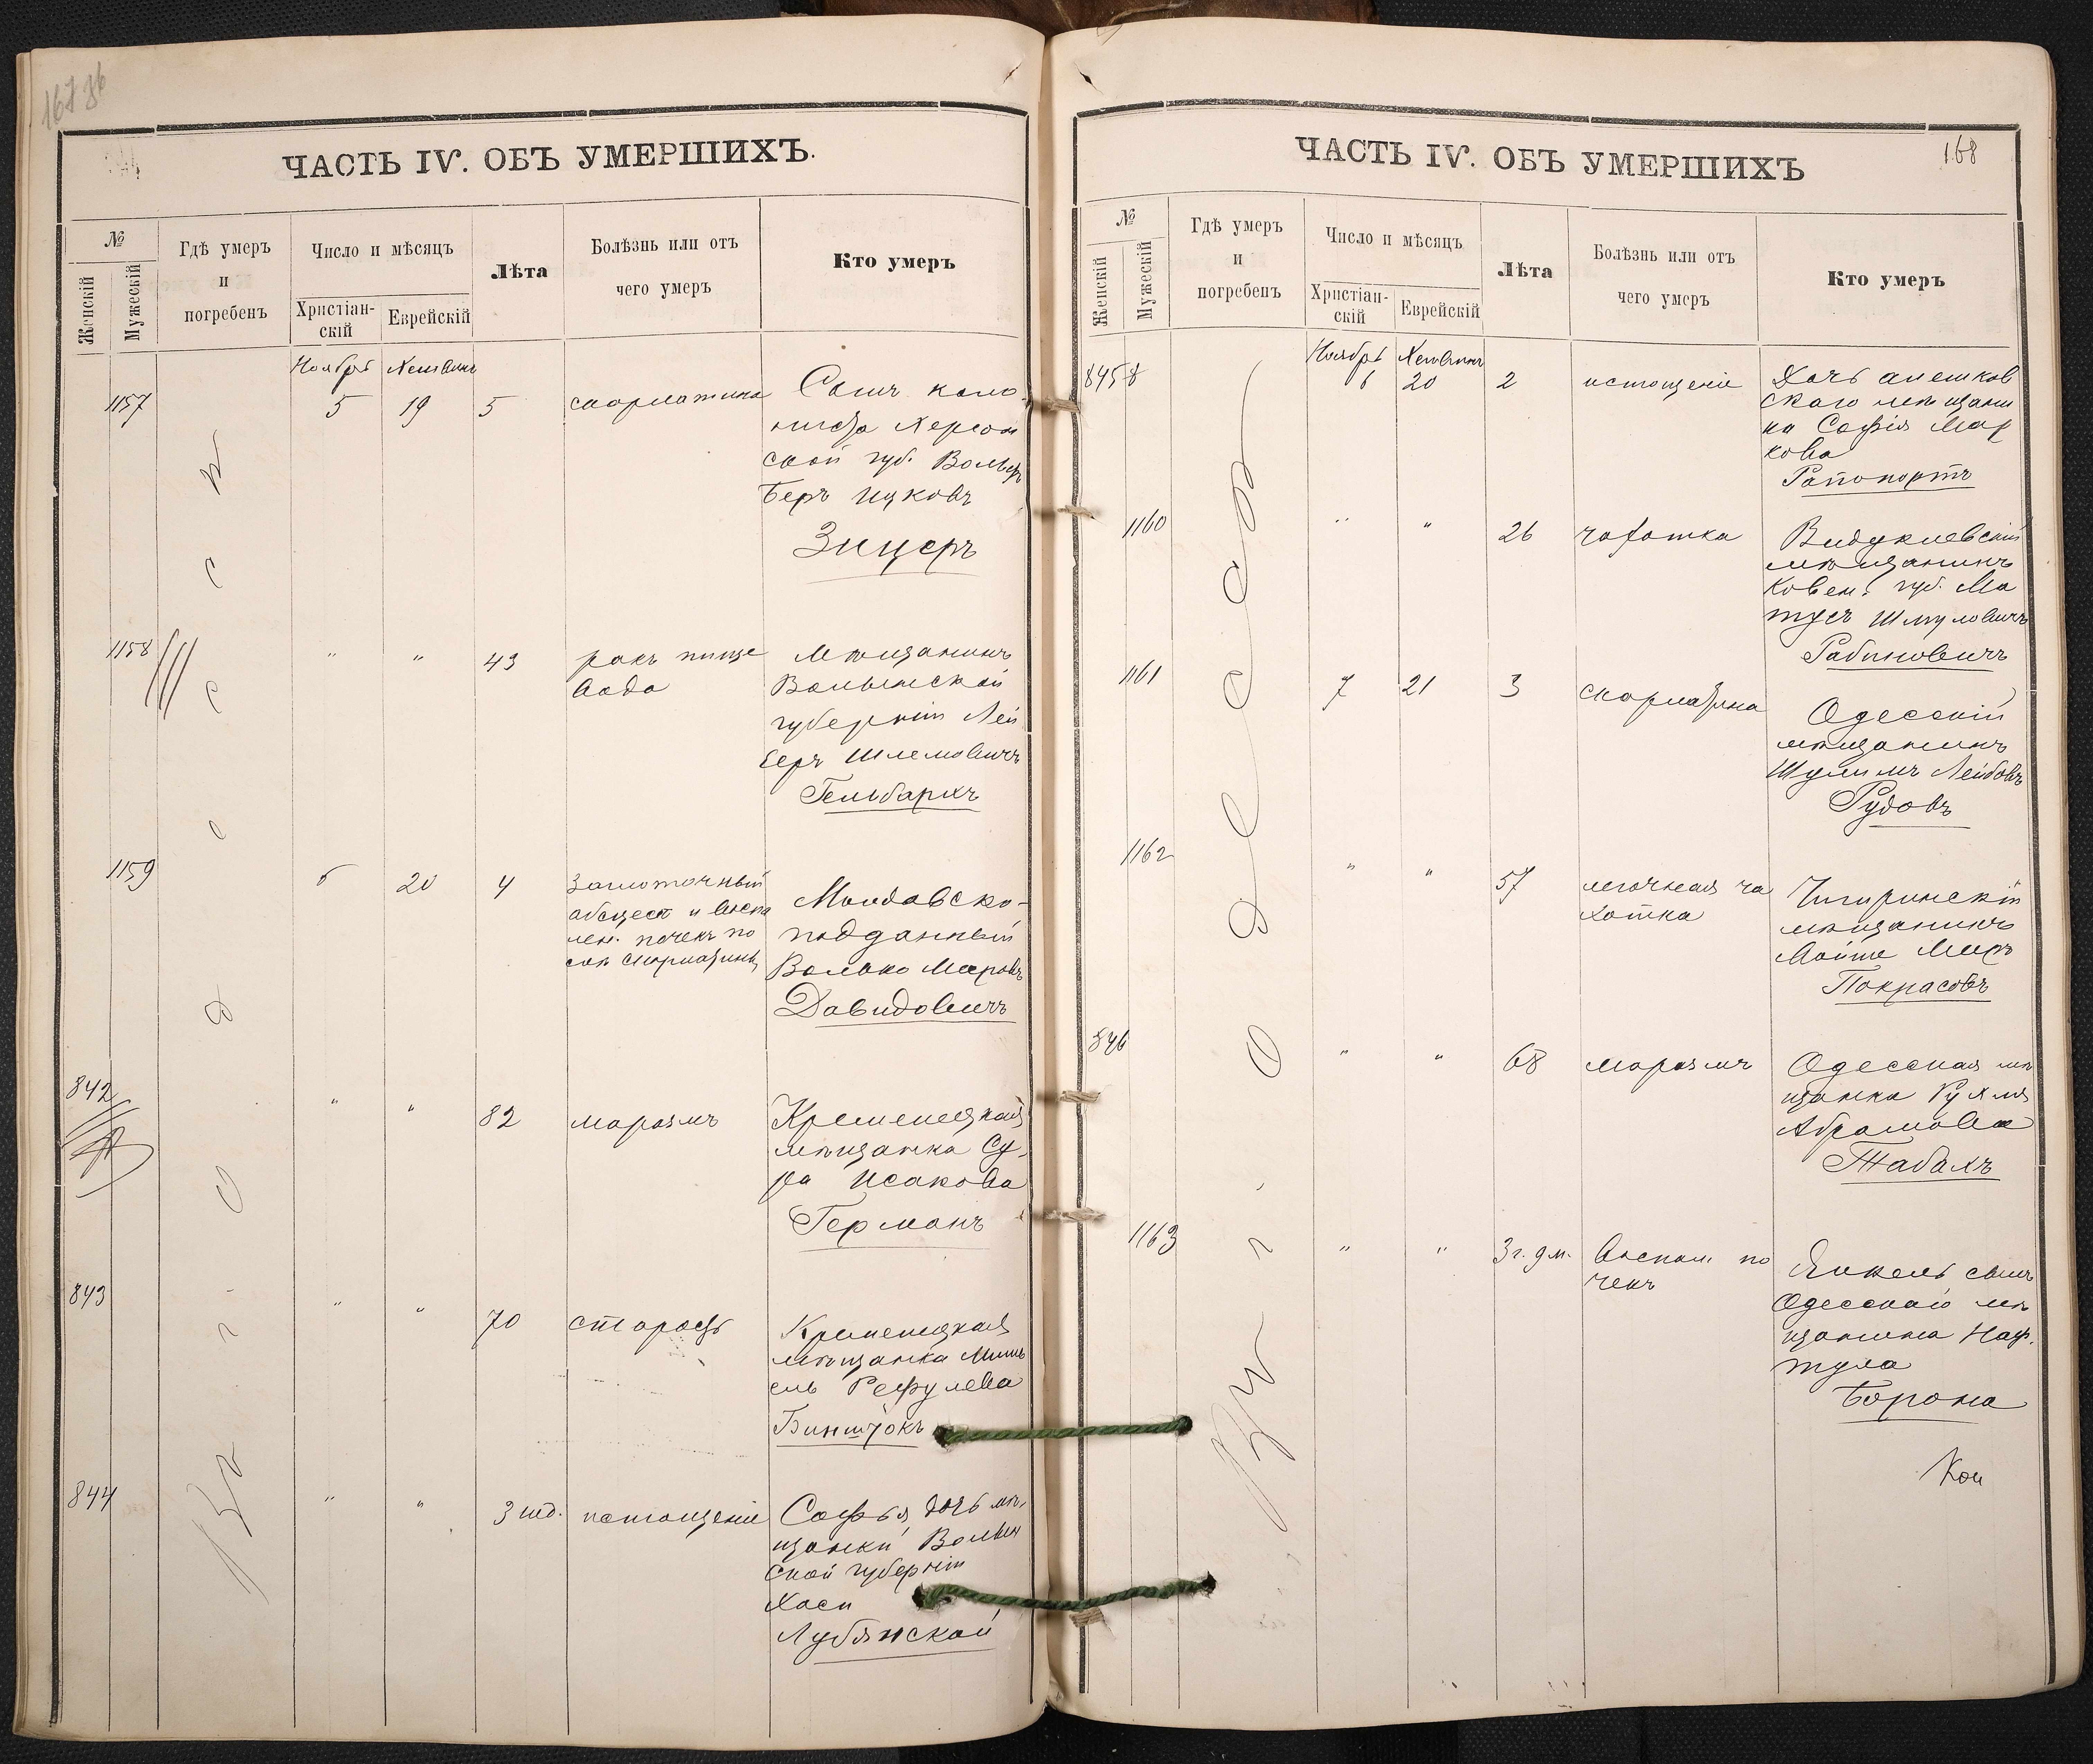 167 зб
ЧАСТЬ IV. ОБЪ УМЕРШИХЪ.
№
Женскій
Мужескій
Гдѣ умеръ
и
погребенъ
Число и мѣсяцъ
Христіан-
скій
Еврейскій
Лѣта
Болѣзнь или отъ
чего умеръ
Кто умеръ
Въ г. Одессѣ
Ноябрь Хешванъ
1157 5 19 5 скарлатина
Сынъ коло-
ниста Херсон
ской губ. Вольфъ
Беръ Ицковъ
Зицеръ
1158 " " 43 ракъ пище
вода
Мѣщанинъ
Волынской
губерніи Лей
зеръ Шлемовичъ
Гельбархъ
1159 6 20 4 Заглоточный
абсцесъ и воспа
лен. почекъ по
слѣ скарлатины
Молдавско-
подданный
Волько Меровъ
Давидовичъ
842 " " 82 маразмъ
Кременецкая
мѣщанка Су-
ра Исакова
Германъ
843 " " 70 старость
Кременецкая
мѣщанка
Рефулева
Бинштокъ
844 " " 3 нед. истощеніе
Софья дочь мѣ-
щанки Волын
ской губерніи
Хаси
Лубянской
168
ЧАСТЬ IV. ОБЪ УМЕРШИХЪ
№
Женскій
Мужескій
Гдѣ умеръ
и
погребенъ
Число и мѣсяцъ
Христіан-
скій
Еврейскій
Лѣта
Болѣзнь или отъ
чего умеръ
Кто умеръ
Въ г. Одессѣ
Ноябрь Хешванъ
845 6 20 2 истощеніе
Дочь алешков
скаго мѣщани
на Софія Мар
кова
Рапопортъ
1160 " " 26 чахотка
Видуклевскій
мѣщанинъ
Ковен. губ. Ма
тусъ Шмуловичъ
Рабиновичъ
1161 7 21 3 скарлатина
Одесскій
мѣщанинъ
Шулимъ Лейбовъ
Рудовъ
1162 " " 57 легочная ча
хотка
Чигиринскій
мѣщанинъ
Мойше Меръ
Покрасовъ
846 " " 68 маразмъ
Одесская мѣ
щанка Рухля
Абрамова
Табахъ
1163 " " 3 г. 9 м. Воспал. по
чекъ
Янкель сынъ
Одесскаго мѣ
щанина Наф-
тула
Борона